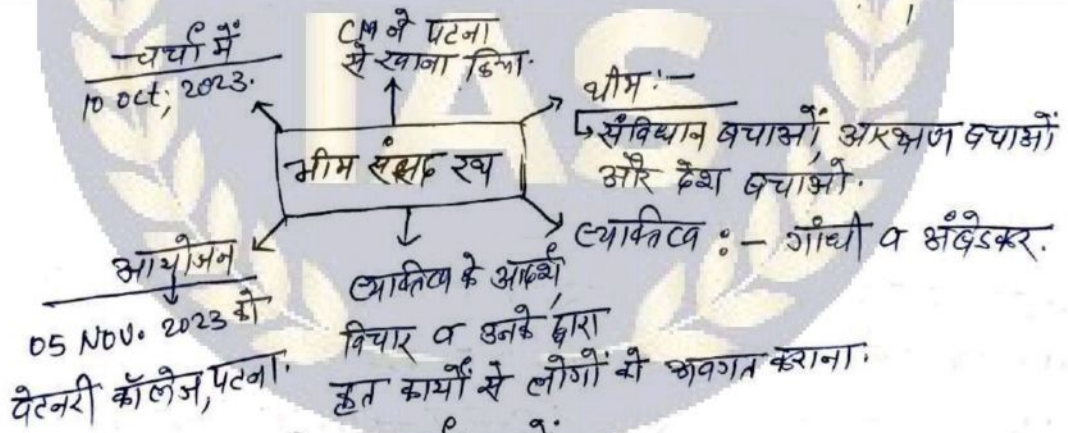 चर्चा में
10 Oct, 2023.
CM ने पटना
से रवाना किया.
थीम :-
संविधान बचाओं, आरक्षण बचाओं
और देश बचाओ.
भीम संसद रथ
व्यक्तित्व :- गांधी व अंबेडकर.
आयोजन
05 NOV. 2023 को
वेटनरी कॉलेज, पटना.
व्यक्तित्व के आदर्श,
विचार व उनके द्वारा
कृत कार्यों से लोगों को अवगत कराना.
IAS